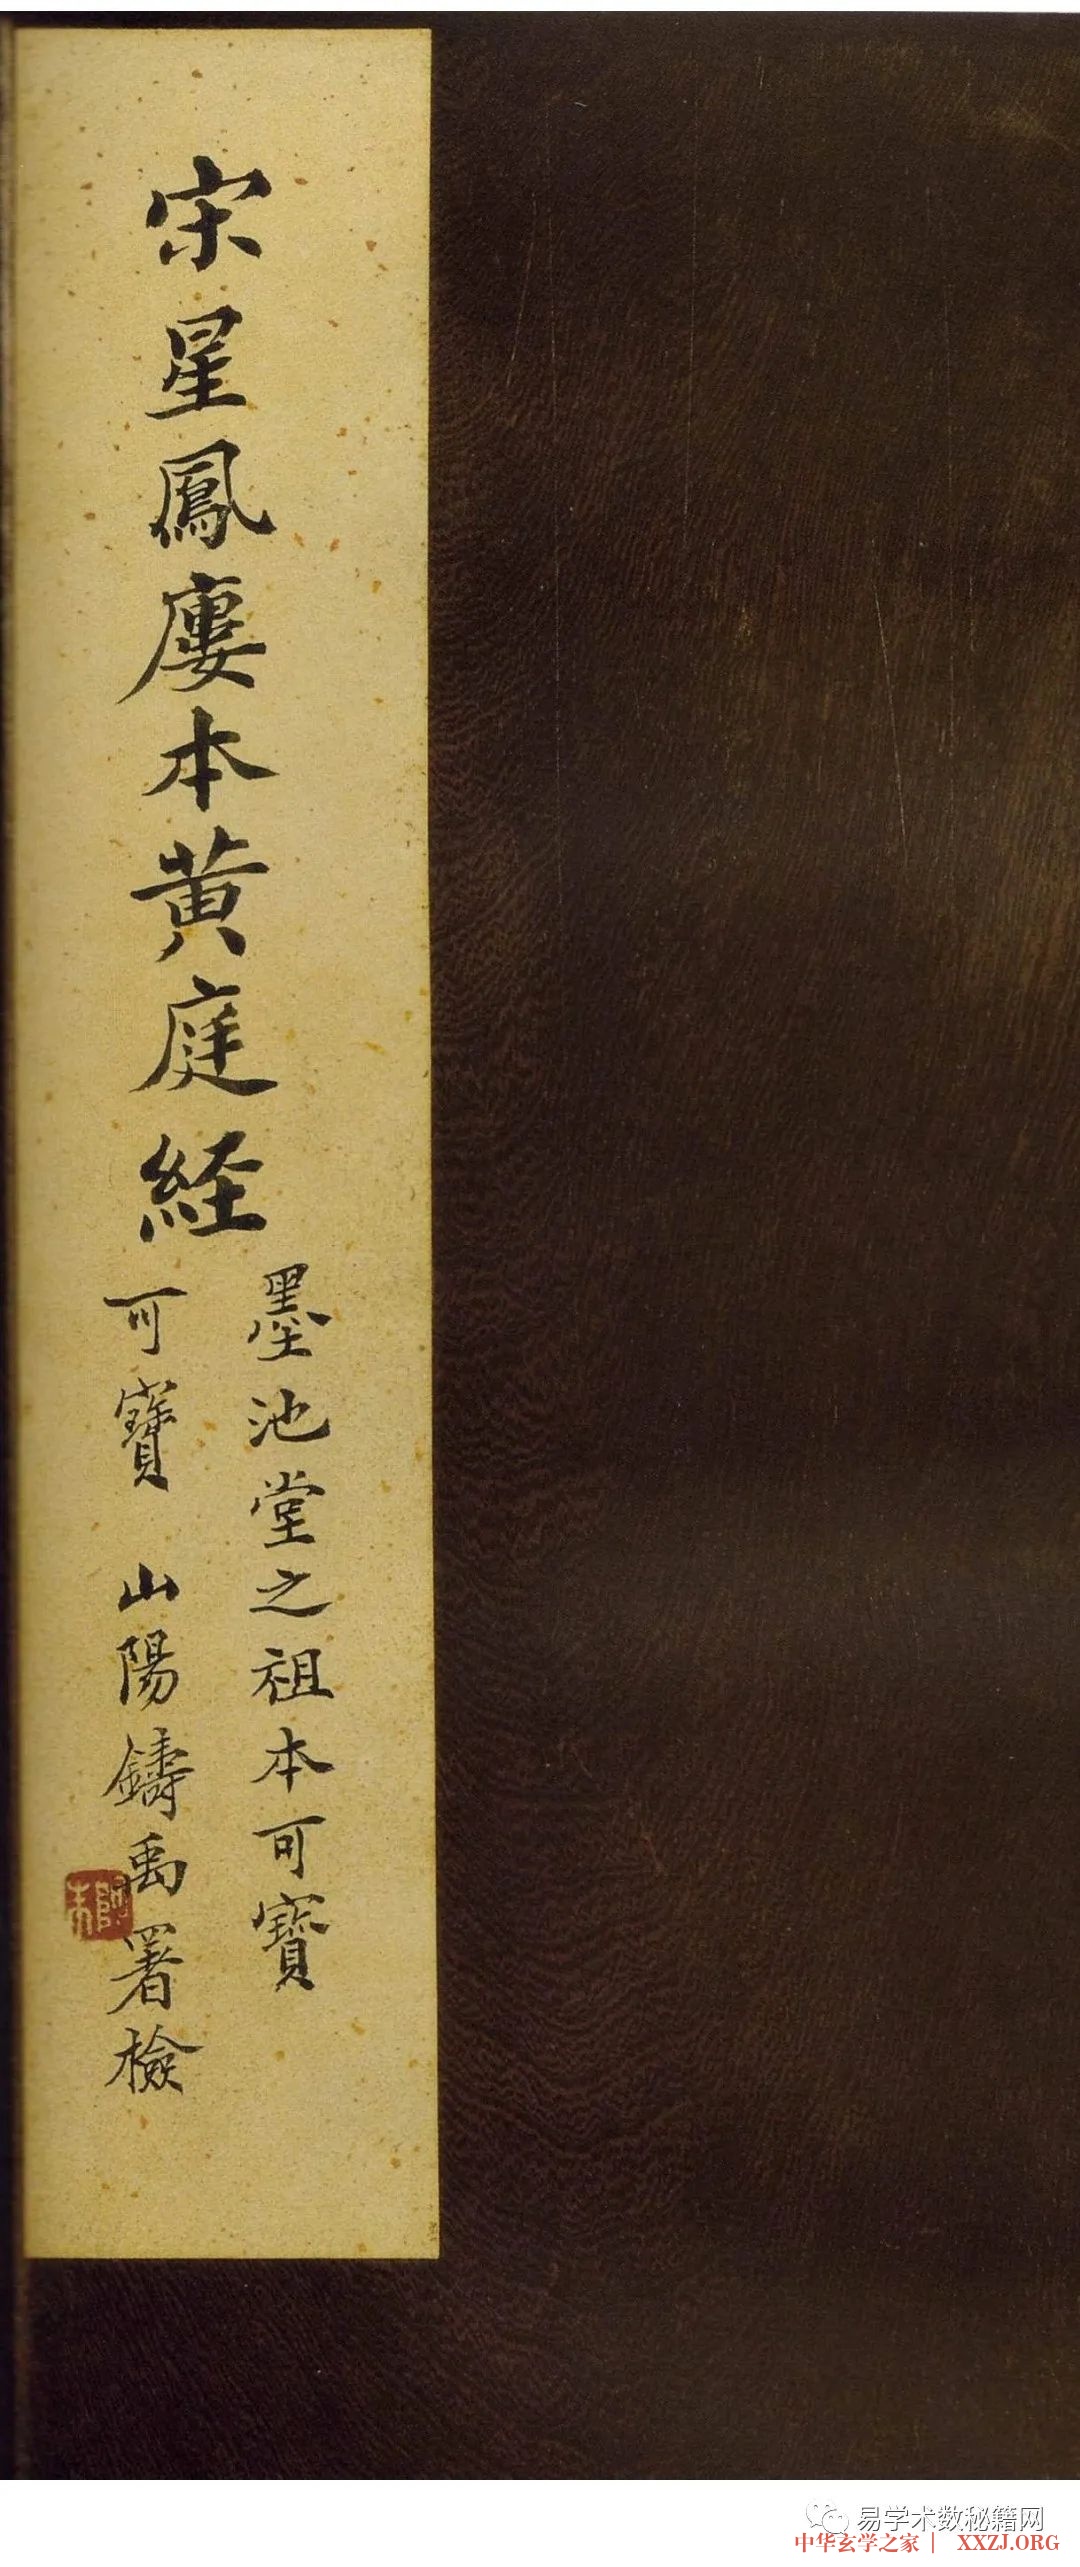 宋星鳳廔本黄庭経
墨池堂之祖本可寶
可寶 山陽鑄禹署檢
易学术数秘籍网
中华玄学之家｜ XXZJ.ORG